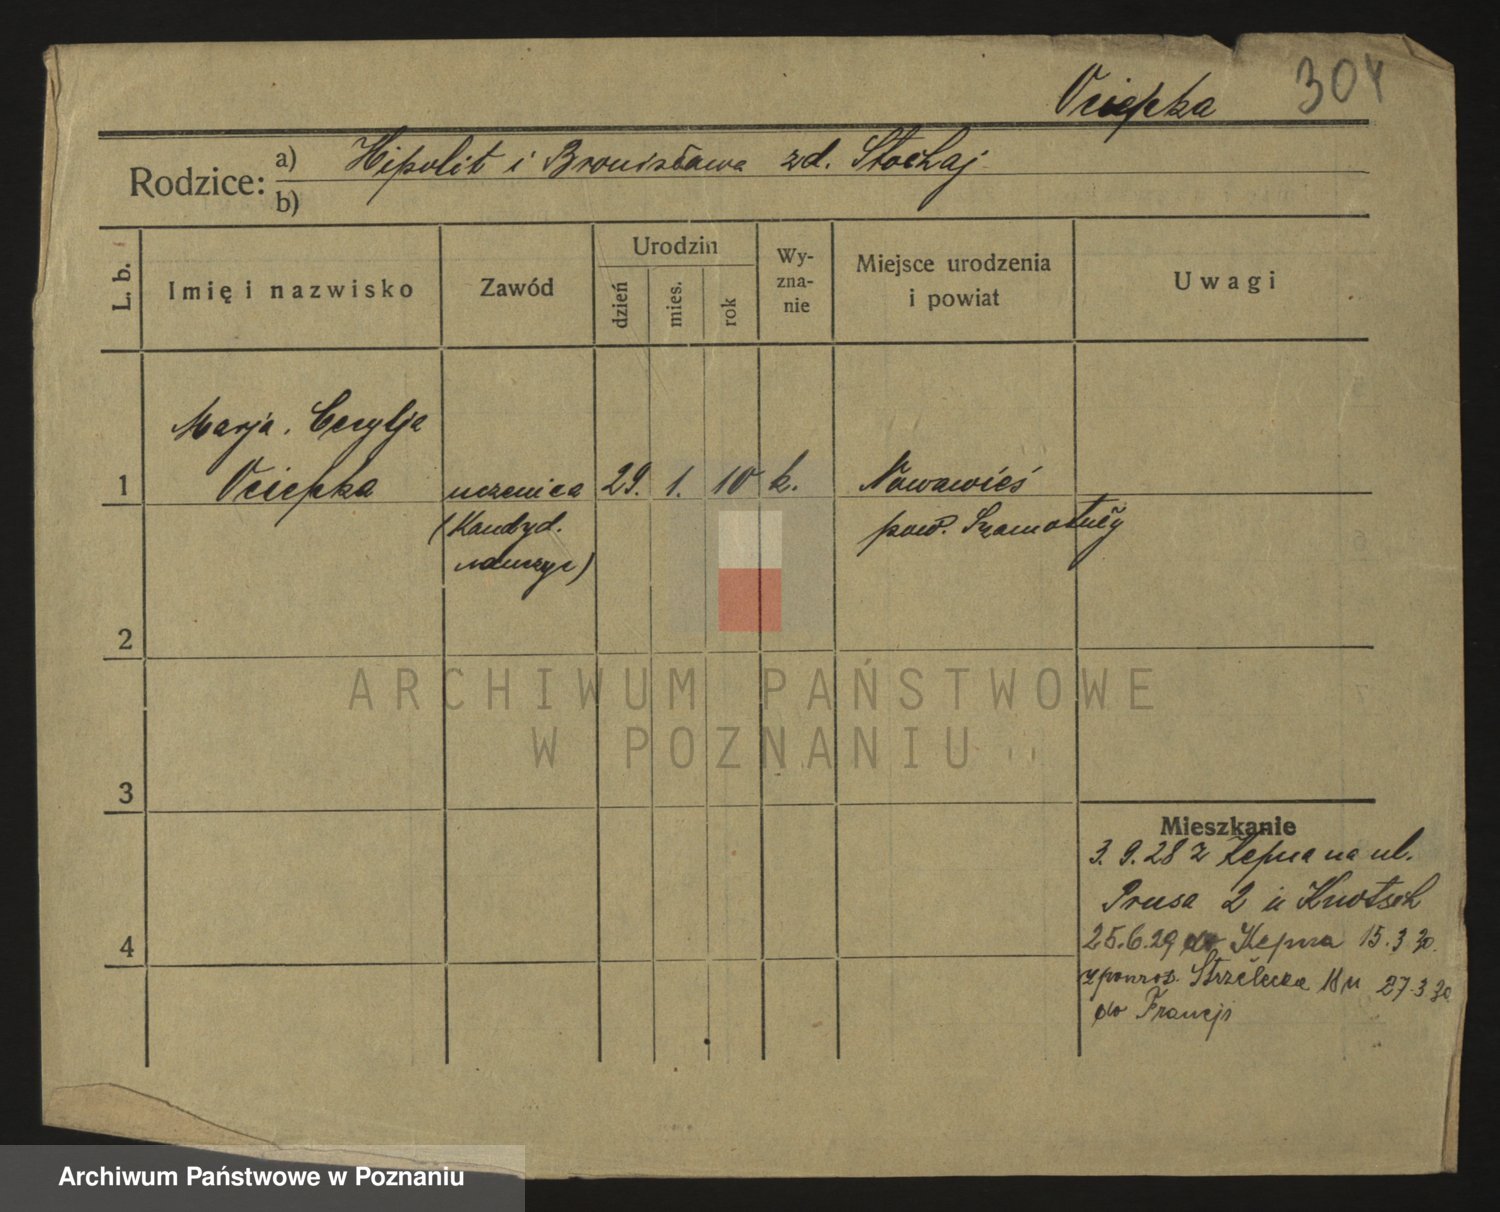 Ociepka 304
Rodzice: a) Hipolit i Bronisława zd. Stochaj
b)
L. b.
Imię i nazwisko
Zawód
Urodzin
dzień
mies.
rok
Wy-
zna-
nie
Miejsce urodzenia
i powiat
Uwagi
Marja. Cecylja
1 Ociepka uczenica 29. 1. 10 k. Nowawieś
(Kandyd. pow. Szamotuły
nauczyc)
2
ARCHIWUM PAŃSTWOWE
W POZNANIU
3
Mieszkanie
3.9.28 z Kępna na ul.
Prusa 2 u Knotsch
4 25.6.29 do Kępna 15.3 30.
z ponrot. Strzelecka 18 27.3 30
do Francji
Archiwum Państwowe w Poznaniu